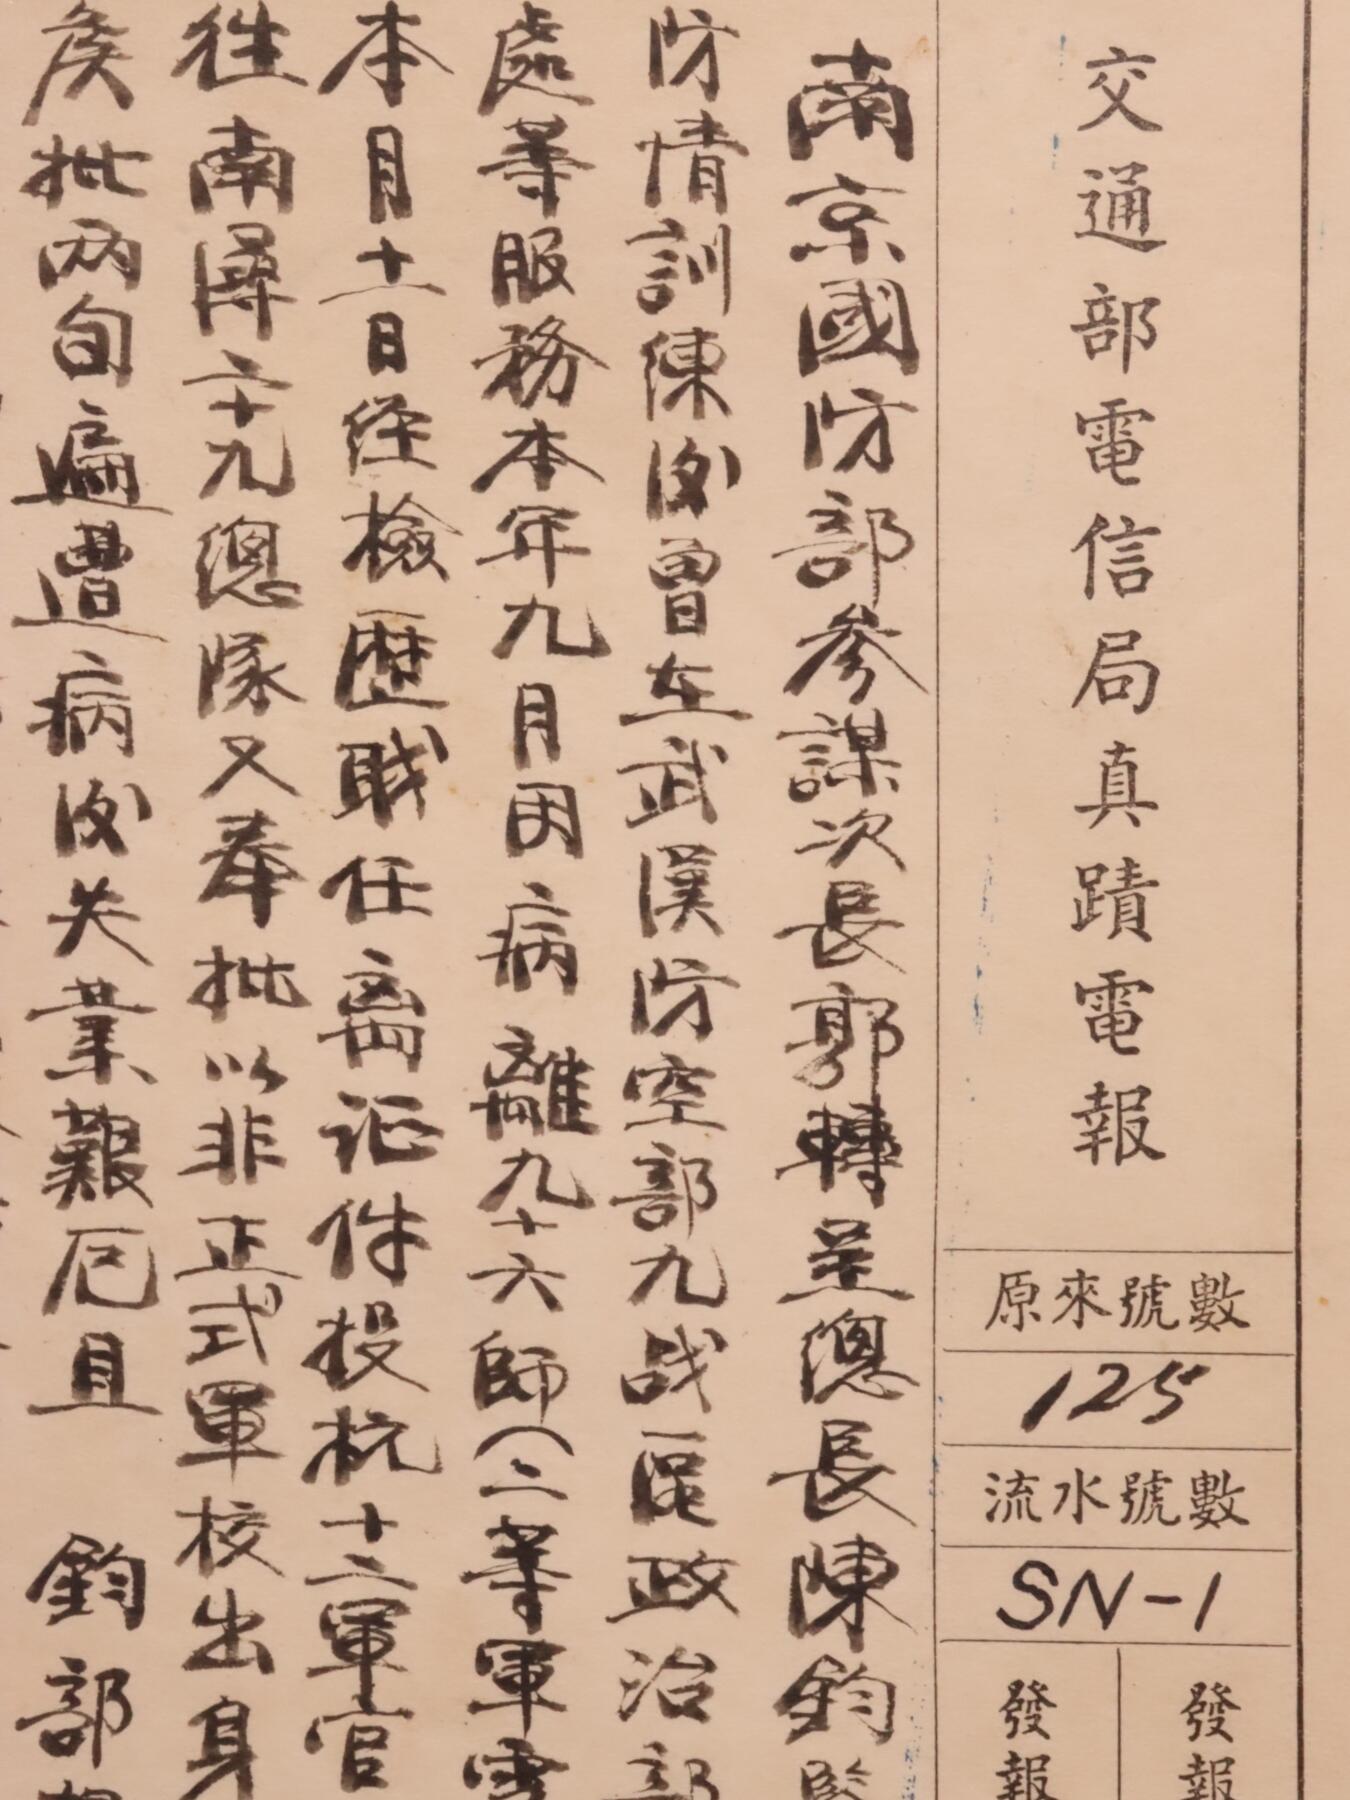 交通部電信局真蹟電報
原來號數
125
流水號數
SN-1
發報
發報
南京國防部參謀次長郭轉呈總長陳鈞
防情訓陳後曾在武漢防空部九战區政治部
處等服務本年九月因病離九十六師(二等軍
本月十一日經檢歷戝任离证件投杭十二軍官
往南潯二十九總隊又奉批以非正式軍校出身
矦批两旬遍遭病後失業艱厄且 鈞部